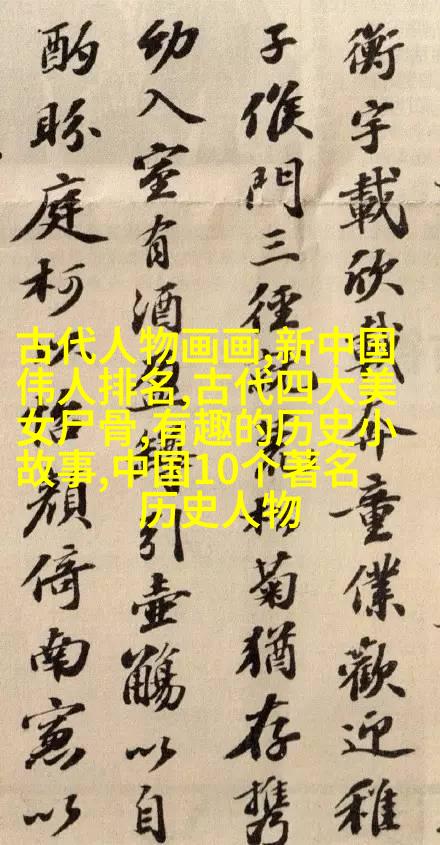 衡宇載欣載奔童僕歡迎稚
子候門三徑就荒松菊猶存携
幼入室有酒盈罇引壺觴以自
酌眄庭柯以怡顏倚南窓以
古代人物画画,新中国
伟人排名,古代四大美
女尸骨,有趣的历史小
故事,中国10个著名
历史人物